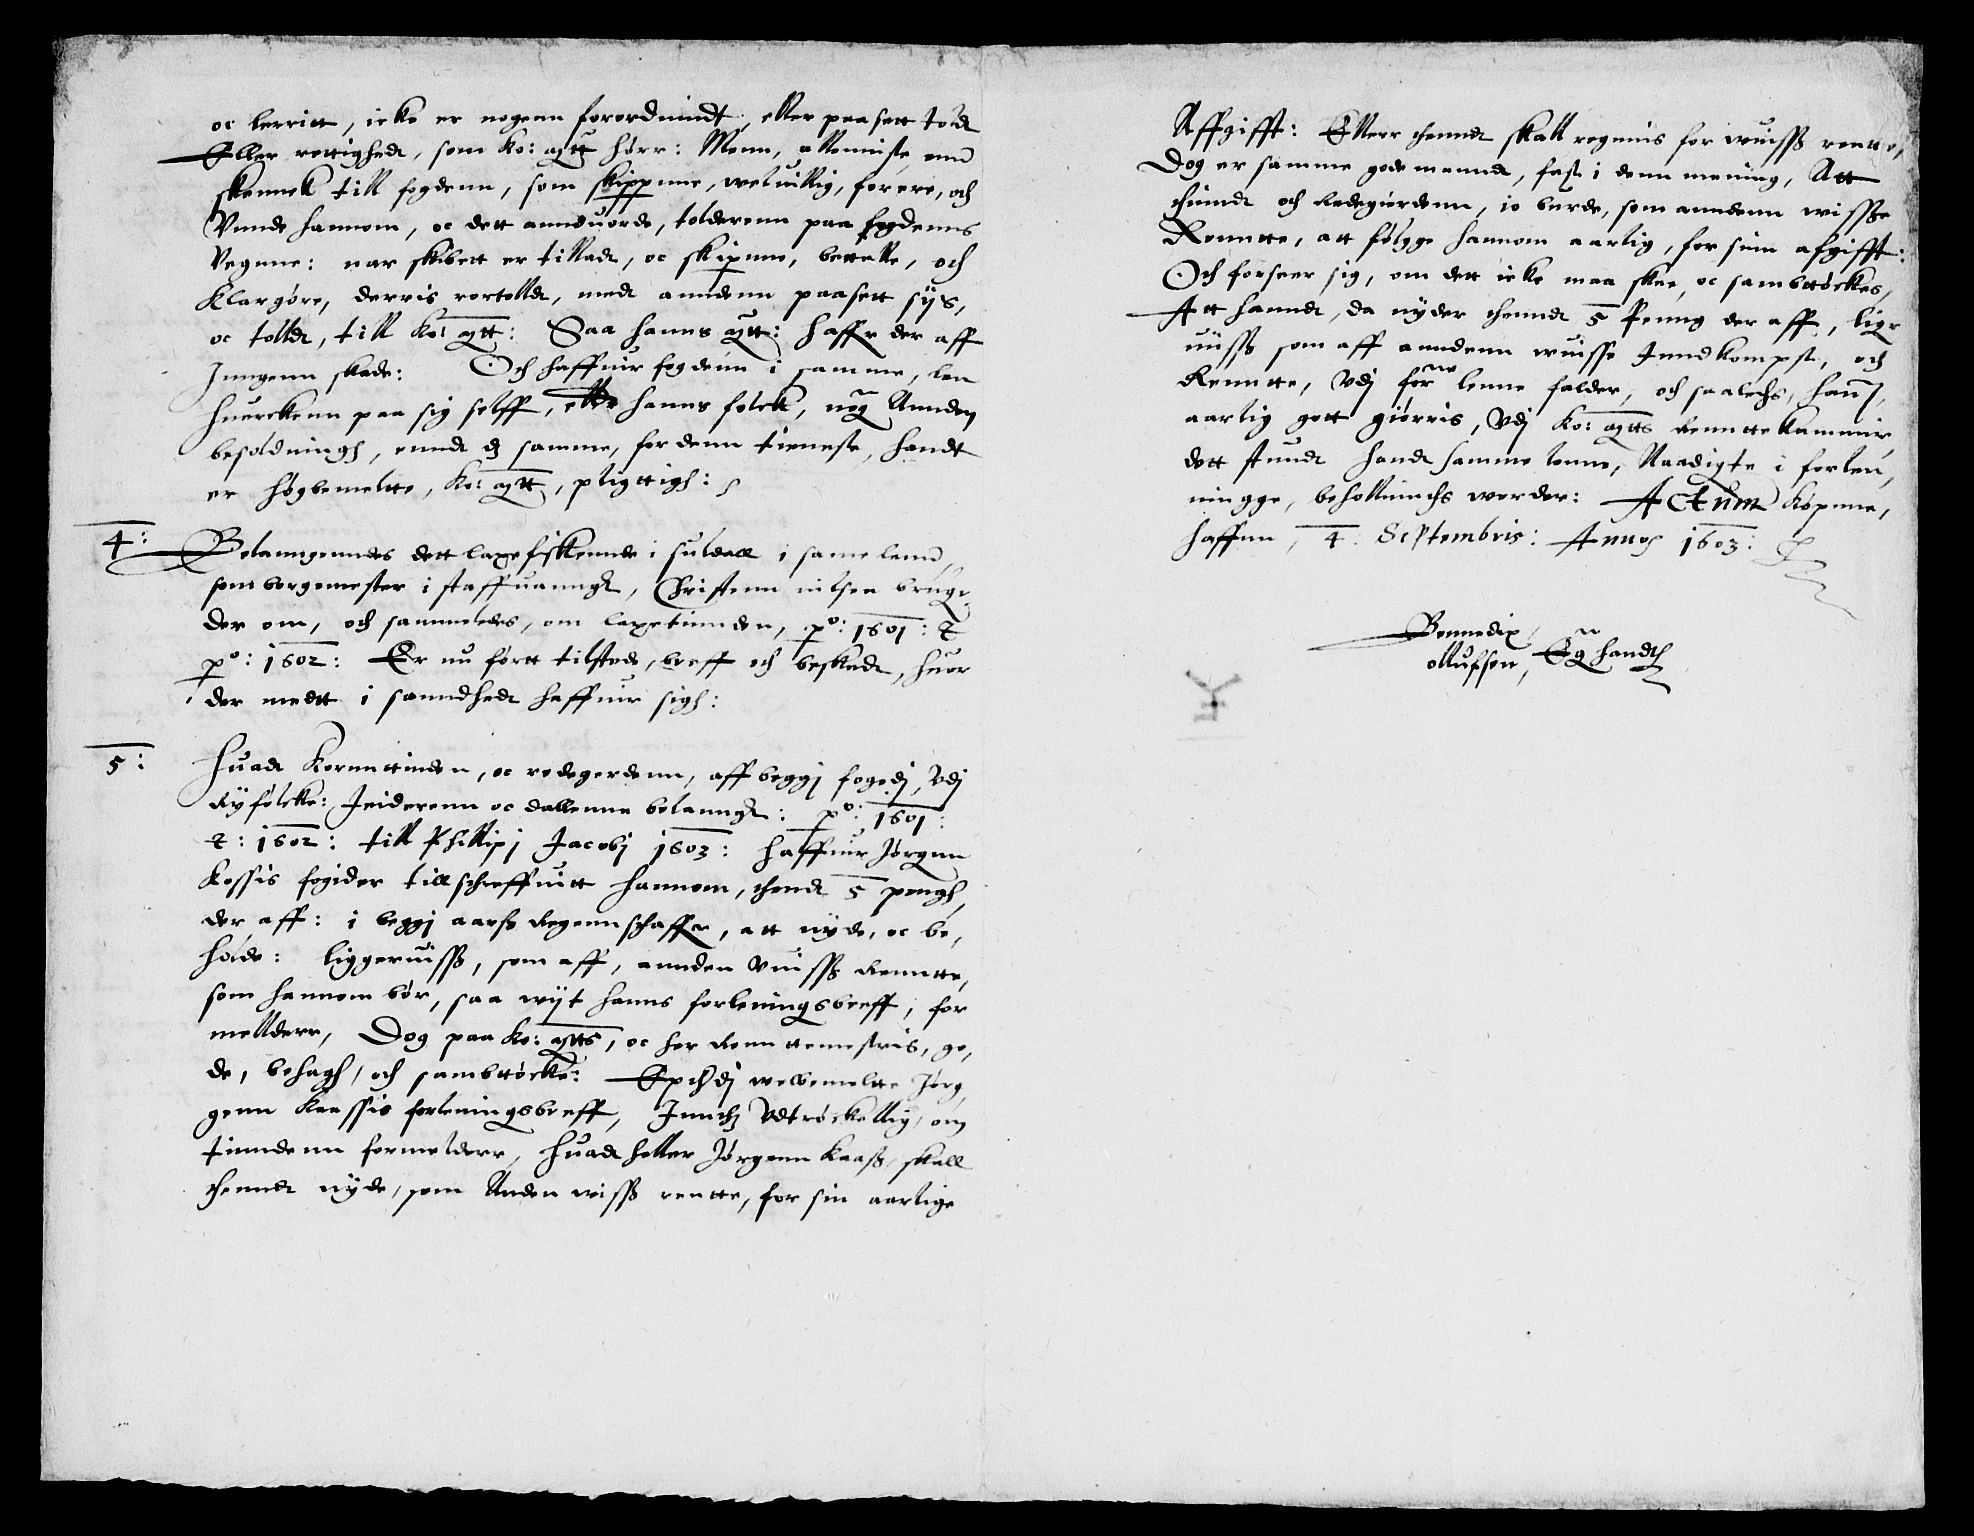 oc lerritt, icke er nogenn forordnindt, eller paa sett told
Eller rettighedt, som Ko: maytt hörr: Menn, alleniste, enn
skennck till fogdenn, som skippenne, weluillig, forere, och
Vnnde hannom, oc dett annduorde, tolderenn paa fogdenns
Vegnne: nar skibett er tilladt, oc skipenne, bettalle, och
Klargöre, derris rortolldt, medt anndenn paasett sijs,
oc tolldt, till Ko: maytt: Saa hanns maytt: haffr der aff
Jnngenn skade: Och haffuir fogdenn i samme, len
huerckenn paa sig selff, eller hanns folck, nog Annden
besoldningh, ennd dn samme, for denn tieneste, handt
er högbemeltte, Ko: maytt, pligttigh:
4: Belanngenndes dett laxefiskennde i suldall i same lenn,
som borgemester i staffuanngr, Christenn nilsen bruger
der om, och sammeledes, om laxetiinden, po: 1601: &
po: 1602: Er nu förtt tilstede, breff och beskedt, huor
der medtt i sanndhedt haffuir sigh:
5: Huadt Kornnttinden, oc redegerdenn, aff beggj fogedj, Vdj
Ryfölcke: Jeiderenn oc dallenne belanngr: po: 1601:
&: 1602: till Phillipj Jacobj 1603: haffuir Jörgnn
Kassis fogider till schreffuitt hannom, thendt 5 pengh,
der aff: i beggj aarss Regennschaffr, att nyde, oc be,
holde: liggeruiss, som aff, annden Vuiss Renntte,
som hannom bör, saa wijt hanns forleningsbreff, for
melldere, Dog paa Ko: maytts, oc her Renntemestris, go,
de, behagh, och sambttöcke: Epthdj welbemeltte Jörg
genn Kaassis forleningsbreff, Jnnthz Vdtröckellig, om
tiindenn formeldere, huadt heller Jörgenn Kaass, skall
thenndt nyde, som Anden wiss rentte, for sin aarlige
Affgifft: Ellerr thenndt skall regnnis for wuiss rentte,
Dog er samme godemanndt, fast i denn mening, Att
thiindt och Redegiördenn, io burde, som anndenn wissze
Renntte, att fölgge hannom aarlig, for siin afgifft:
Och forseer sig, om dett icke maa skee, oc sambttöckes,
Att handt, da nyder thenndt 5 Penng der aff, liger
uiss som aff anndenn wuisse Jnndkompst, och
Renntte, Vdj forne lenne falder, och saaledes, hannom,
aarlig gott giörris, Vdj Ko: maytts Renttekammir
dett stundt handt samme lenne, Naadigte i forlen,
ningge, beholliindhs worder: Actum Köpnne,
haffnn, 4: Septembris: Anno 1603:
Bennedix
olluffsen, Eg handt